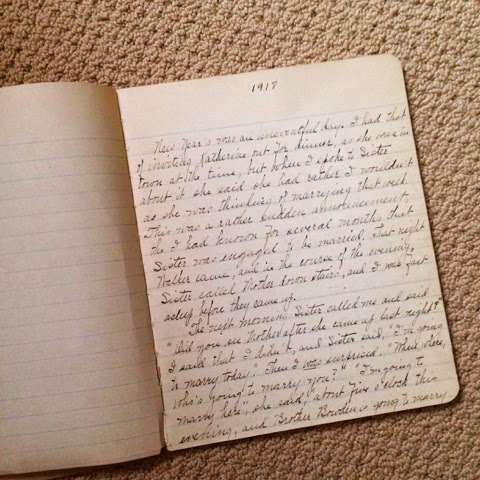 1917
New Year's was an uneventful day. I had thot
of inviting Katherine out for dinner, as she was in
town at the time, but when I spoke to Sister
about it she said she had rather I wouldn't
as she was thinking of marrying that week.
This was a rather sudden announcement,
tho I had known for several months that
Sister was engaged to be married. That night
Walker came, and in the course of the evening,
Sister called Mother down stairs, and I was fast
asleep before they came up.
The next morning Sister called me and said
"Did you see Mother after she came up last night?"
I said that I didn't, and Sister said, "I'm going
to marry today." Then I was surprised. "When, where,
who's going to marry you?" "I'm going to
marry here", she said, "about five o'clock this
evening, and Brother Bowden is going to marry